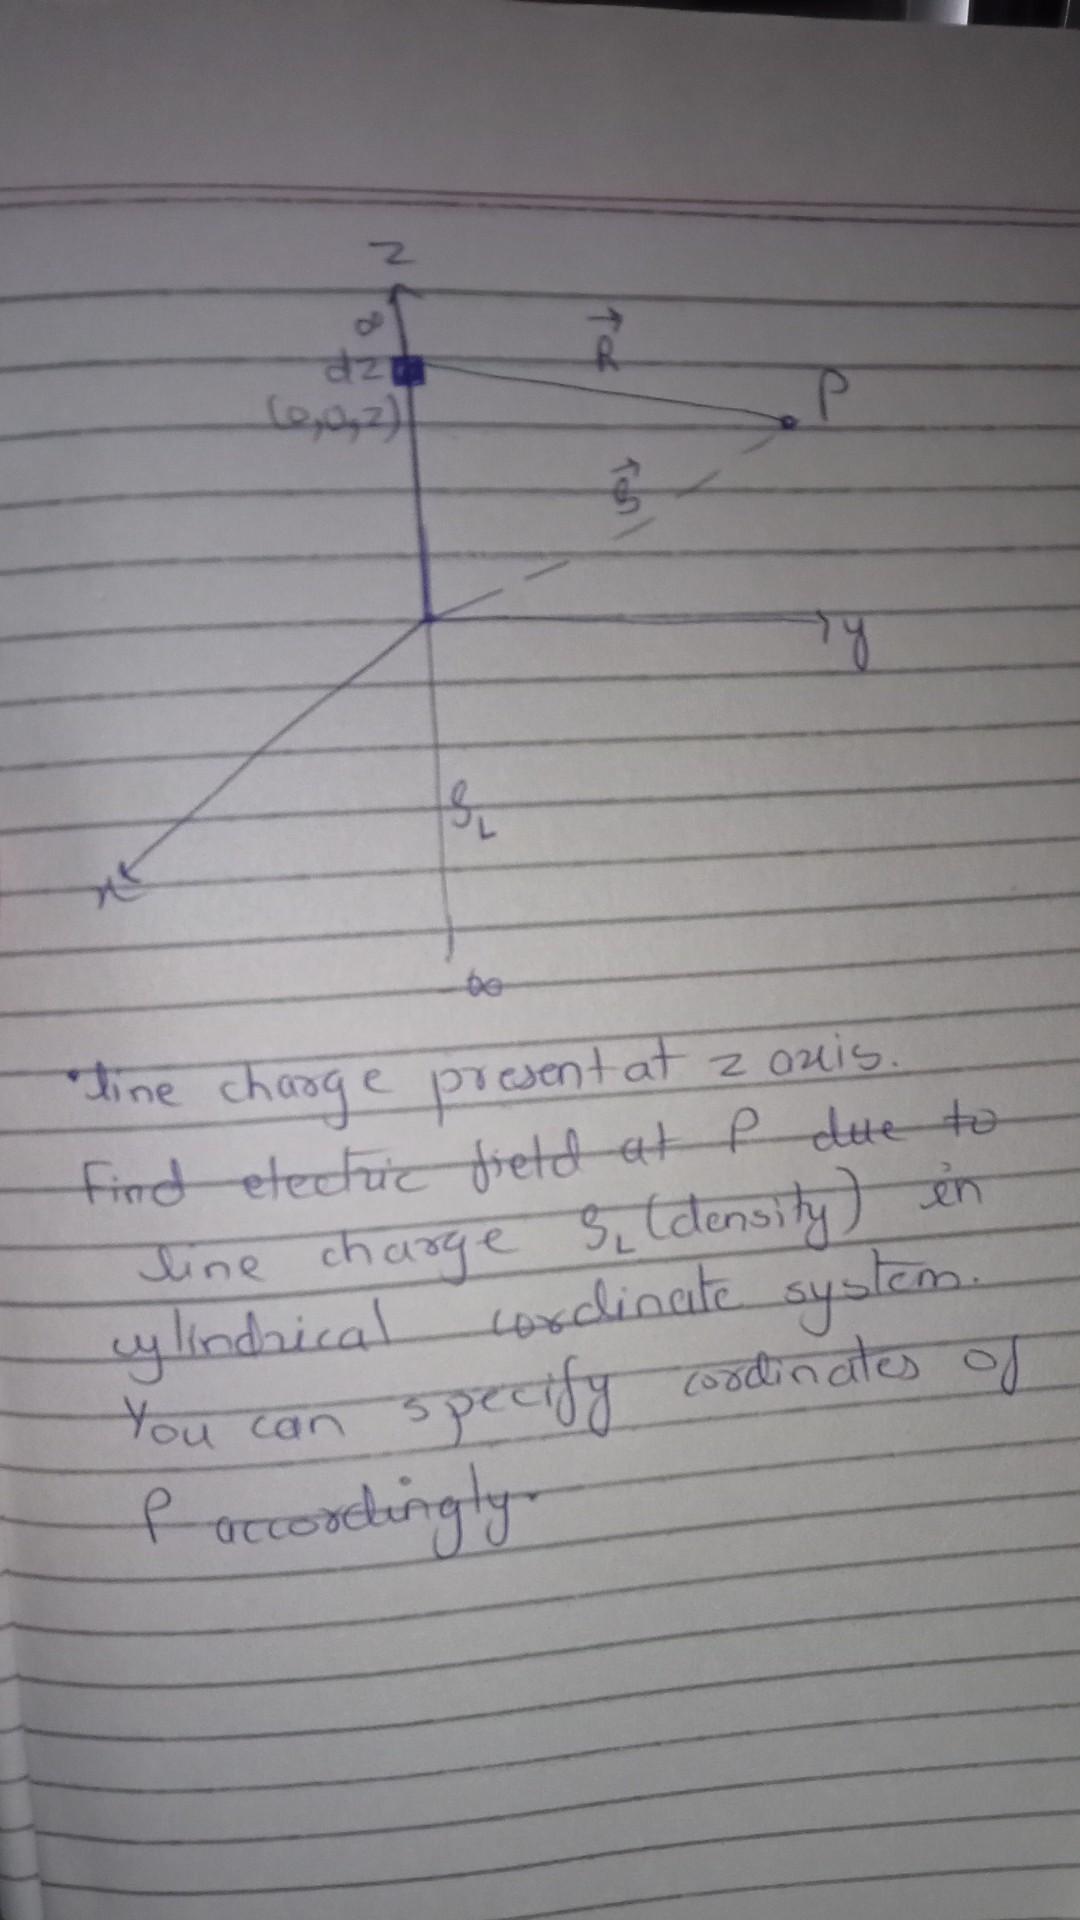 z
∞
dz
(0,0,z)
R
P
ρ
y
ρL
x
-∞
•line charge present at z axis.
Find electric field at P due to
line charge ρL (density) in
cylindrical cordinate system.
You can specify cordinates of
P accordingly.